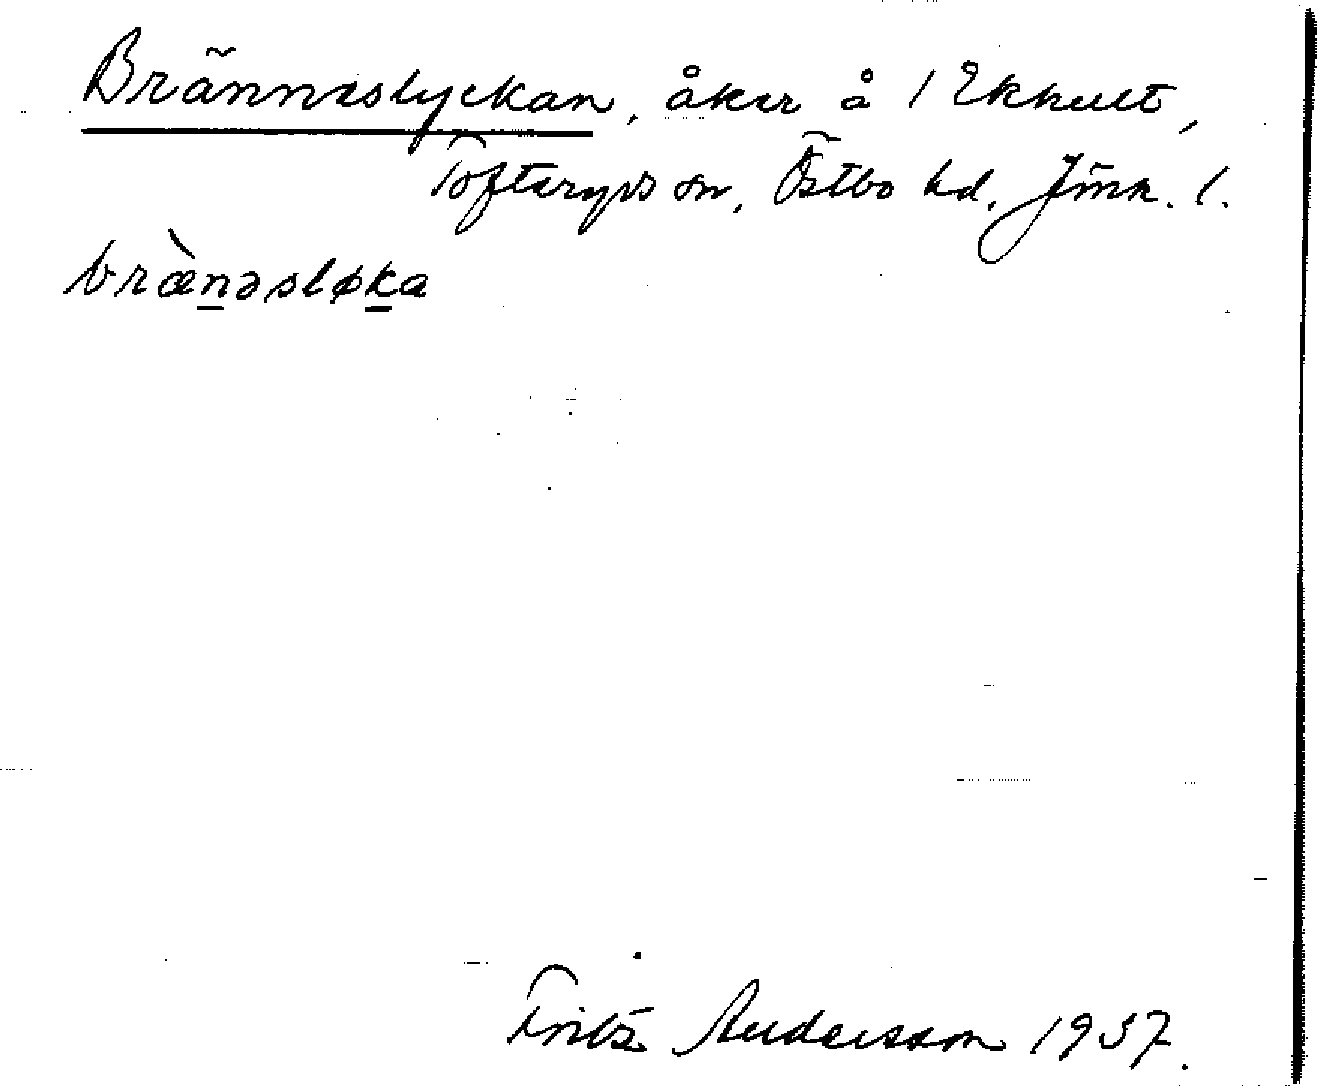 Bränneslyckan, åker å 1 Ekhult,
Tofteryds sn, Östbo hd, Jönk. l.
bræ̀nəsløka
Fritz Andersson 1937.